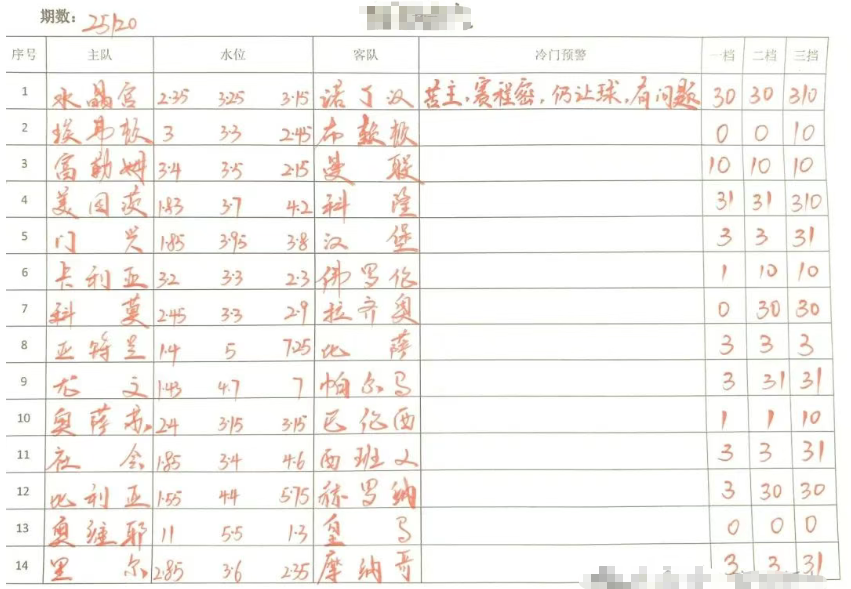 期数：25120
序号 主队 水位 客队 冷门预警 一档 二档 三挡
1 水晶宫 2.35 3.25 3.15 诺丁汉 苦主，赛程密，仍让球，有问题 30 30 310
2 埃弗顿 3 3.3 2.45 布敦顿 0 0 10
3 富勒姆 3.4 3.5 2.15 曼联 10 10 10
4 美因茨 1.83 3.7 4.2 科隆 31 31 310
5 门兴 1.85 3.95 3.8 汉堡 3 3 31
6 卡利亚 3.2 3.3 2.3 佛罗伦 1 10 10
7 科莫 2.45 3.3 2.9 拉齐奥 0 30 30
8 亚特兰 1.4 5 7.25 比萨 3 3 3
9 尤文 1.43 4.7 7 帕尔马 3 31 31
10 奥萨苏 2.4 3.15 3.15 巴伦西 1 1 10
11 社会 1.85 3.4 4.6 西班人 3 3 31
12 比利亚 1.55 4.4 5.75 赫罗纳 3 30 30
13 奥维耶 11 5.5 1.3 皇马 0 0 0
14 里尔 2.85 3.6 2.35 摩纳哥 3 3 31